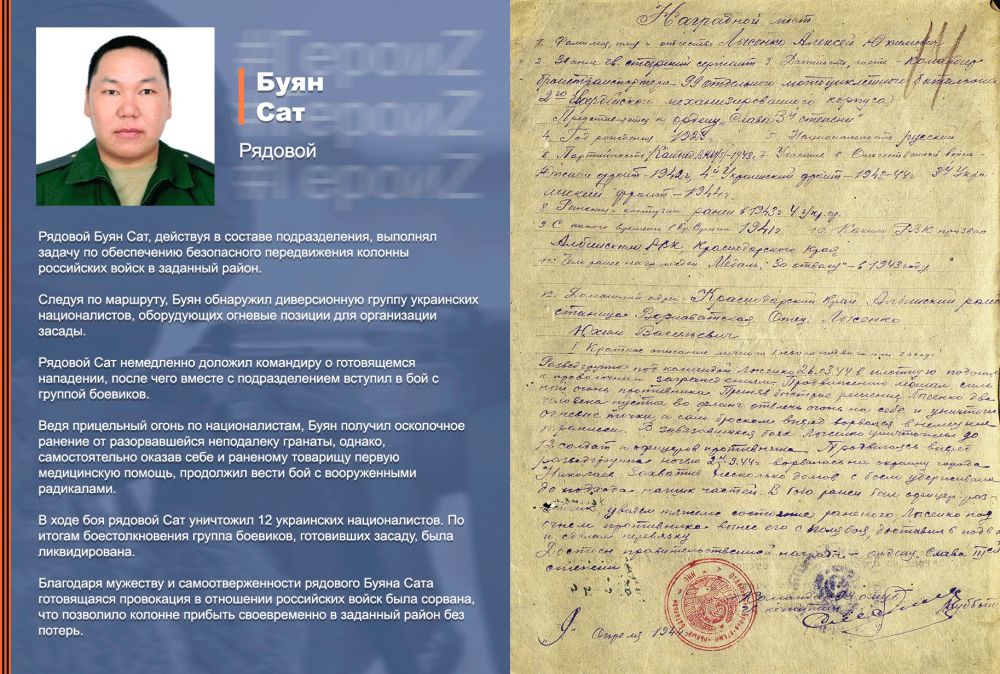 #ГероиZ
#ГероиZ
#ГероиZ
Буян
Сат
Рядовой
Рядовой Буян Сат, действуя в составе подразделения, выполнял
задачу по обеспечению безопасного передвижения колонны
российских войск в заданный район.
Следуя по маршруту, Буян обнаружил диверсионную группу украинских
националистов, оборудующих огневые позиции для организации
засады.
Рядовой Сат немедленно доложил командиру о готовящемся
нападении, после чего вместе с подразделением вступил в бой с
группой боевиков.
Ведя прицельный огонь по националистам, Буян получил осколочное
ранение от разорвавшейся неподалеку гранаты, однако,
самостоятельно оказав себе и раненому товарищу первую
медицинскую помощь, продолжил вести бой с вооруженными
радикалами.
В ходе боя рядовой Сат уничтожил 12 украинских националистов. По
итогам боестолкновения группа боевиков, готовивших засаду, была
ликвидирована.
Благодаря мужеству и самоотверженности рядового Буяна Сата
готовящаяся провокация в отношении российских войск была сорвана,
что позволило колонне прибыть своевременно в заданный район без
потерь.
Наградной лист
1. Фамилия, имя и отчество Лысенко Алексей Юхимович
2. Звание гв. старший сержант 3. Должность, часть - командир
бронетранспортера 99 отдельного мотоциклетного батальона
2го Гвардейского механизированного корпуса
Представляется к ордену „Слава 3й степени"
4. Год рождения 1925 5. Национальность русский
6. Партийность 1943 7. Участие в Отечественной войне
Южный фронт-1942г, 4й Украинский фронт-1943-44г 3й Укра
инский фронт-1944г.
8. Ранения и контузии ранен в 1943г
9. С какого времени в Кр. Армии 1941г 10. Каким РВК призван
РВК Краснодарского Края
11. Чем ранее награжден Медаль „За отвагу"-в 1943 году
12. Домашний адрес: Краснодарский Край, район
станица Отец Лысенко
Юхим Васильевич
I Краткое описание личного боевого подвига или заслуг
Разведгруппа под командой Лысенко 26.03.44 вплотную подошла
к проволочным заграждениям. Продвижению мешал силь
ный огонь противника. Приняв быстрое решение Лысенко два
человека пустил во фланг отвлечь огонь на себя и уничтожить
огневые точки, а сам броском вперед ворвался в немецкие
траншеи. В завязавшемся бою Лысенко уничтожил до
12 солдат и офицеров противника. Продвигаясь вперед
разведгруппа ночью 27.3.44г ворвалась на окраину города
Николаев захватив несколько домов с боем удерживала
до подхода наших частей. В бою ранен был офицер-раз
ведчик, увидев тяжелое состояние раненого Лысенко под
огнем противника вынес его с поля боя, доставил в
и сделал перевязку
Достоин правительственной награды - ордену „Слава III й
степени
Командир
Апреля 1944